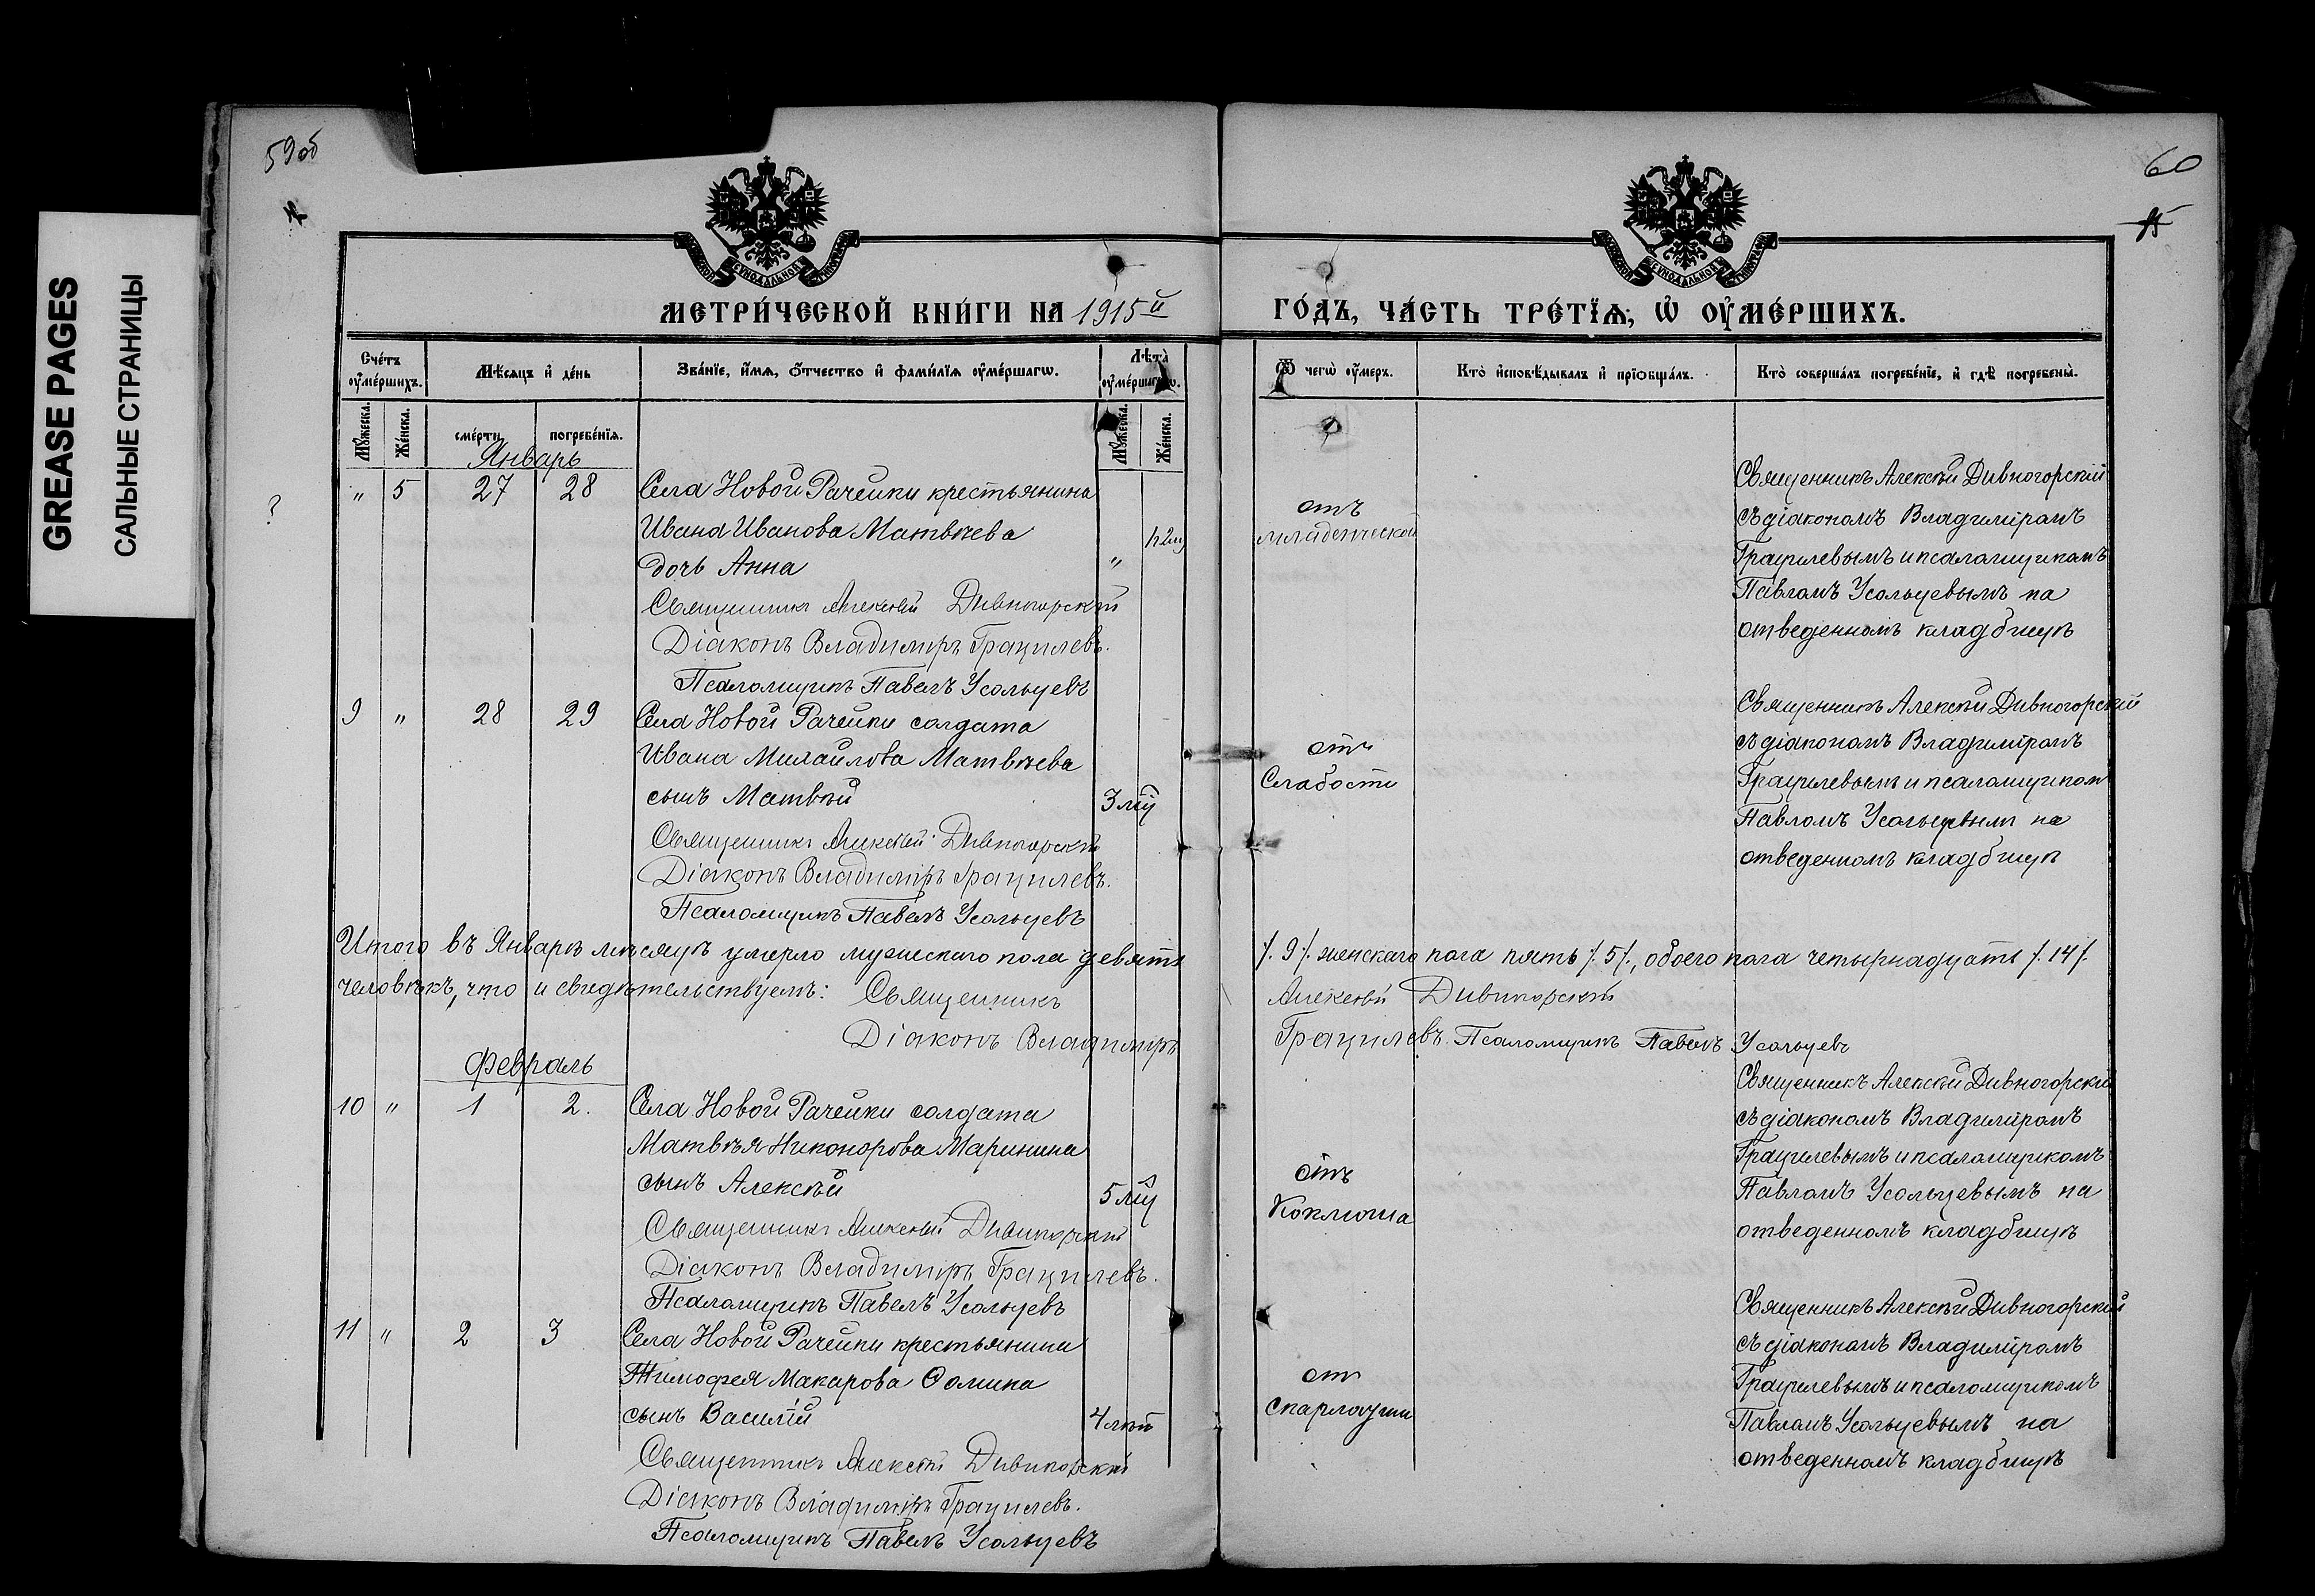 GREASE PAGES
САЛЬНЫЕ СТРАНИЦЫ
59об
60
МЕТРИ́ЧЕСКОЙ КНИ́ГИ НА 1915й
ГО́ДЪ, ЧА́СТЬ ТРЕ́ТЇѦ, Ѡ҆ ОУ҆МЕ́РШИХЪ.
Сче́тъ оу҆ме́ршихъ.
Мѣ́сѧцъ и҆ де́нь
Зва́нїе, и҆́мѧ, ѻ҆́тчество и҆ фами́лїѧ оу҆ме́ршагѡ.
Лѣ́та оу҆ме́ршагѡ.
Ѿ чегѡ̀ оу҆́меръ.
Кто̀ и҆сповѣ́дывалъ и҆ прїѡбща́лъ.
Кто̀ соверша́лъ погребе́нїе, и҆ гдѣ̀ погребены̀.
Мꙋ́жеска.
Же́нска.
сме́рти.
погребе́нїѧ.
Мꙋ́жеска.
Же́нска.
Январь
" 5 27 28 Села Новой Рачейки крестьянина
Ивана Иванова Матвѣева
дочь Анна "
Священникъ Алексѣй Дивногорскій
Діаконъ Владиміръ Грацилевъ.
Псаломщикъ Павелъ Усольцевъ
отъ
младенческой
Священникъ Алексѣй Дивногорскій
съ діакономъ Владиміромъ
Грацилевымъ и псаломщикомъ
Павломъ Усольцевымъ на
отведенномъ кладбищѣ
?
9 " 28 29 Села Новой Рачейки солдата
Ивана Михайлова Матвѣева
сынъ Матвѣй 3 мц
Священникъ Алексѣй Дивногорскій
Діаконъ Владиміръ Грацилевъ.
Псаломщикъ Павелъ Усольцевъ
отъ
Слабости
Священникъ Алексѣй Дивногорскій
съ діакономъ Владиміромъ
Грацилевымъ и псаломщиком
Павломъ Усольцевымъ на
отведенномъ кладбищѣ
Итого въ Январѣ мѣсяцѣ умерло мужескаго пола девять ./. 9 ./. женскаго пола пять ./. 5 ./., обоего пола четырнадцать ./. 14 ./.
человѣкъ, что и свидѣтельствуемъ: Священникъ Алексѣй Дивногорскій
Діаконъ Владиміръ Грацилевъ. Псаломщикъ Павелъ Усольцевъ
Февраль
10 " 1 2. Села Новой Рачейки солдата
Матвѣя Никонорова Маринина
сынъ Алексѣй 5 мц
Священникъ Алексѣй Дивногорскій
Діаконъ Владиміръ Грацилевъ.
Псаломщикъ Павелъ Усольцевъ
отъ
Коклюша
Священникъ Алексѣй Дивногорскій
съ діакономъ Владиміромъ
Грацилевымъ и псаломщикомъ
Павломъ Усольцевымъ на
отведенномъ кладбищѣ
11 " 2 3 Села Новой Рачейки крестьянина
Тимофея Макарова Ѳомина
сынъ Василій 4 лѣт
Священникъ Алексѣй Дивногорскій
Діаконъ Владиміръ Грацилевъ.
Псаломщикъ Павелъ Усольцевъ
отъ
Скарлатии
Священникъ Алексѣй Дивногорскій
съ діакономъ Владиміромъ
Грацилевымъ и псаломщикомъ
Павломъ Усольцевымъ на
отведенномъ кладбищѣ